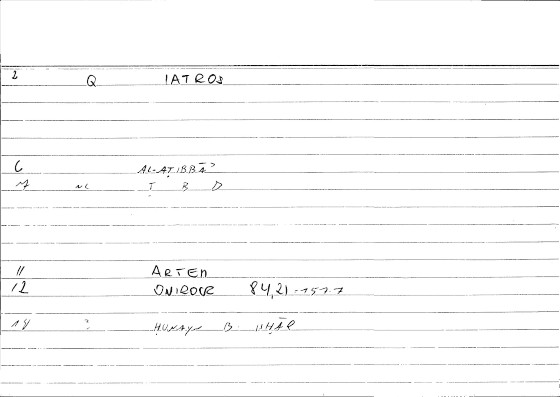 2 Q IATROS
6 AL-AṬIBBĀʾ
M NC Ṭ B D
11 ARTEM
12 ONIROCR 84,21 -157.7
14 ? ḤUNAYN B. ISḤĀQ